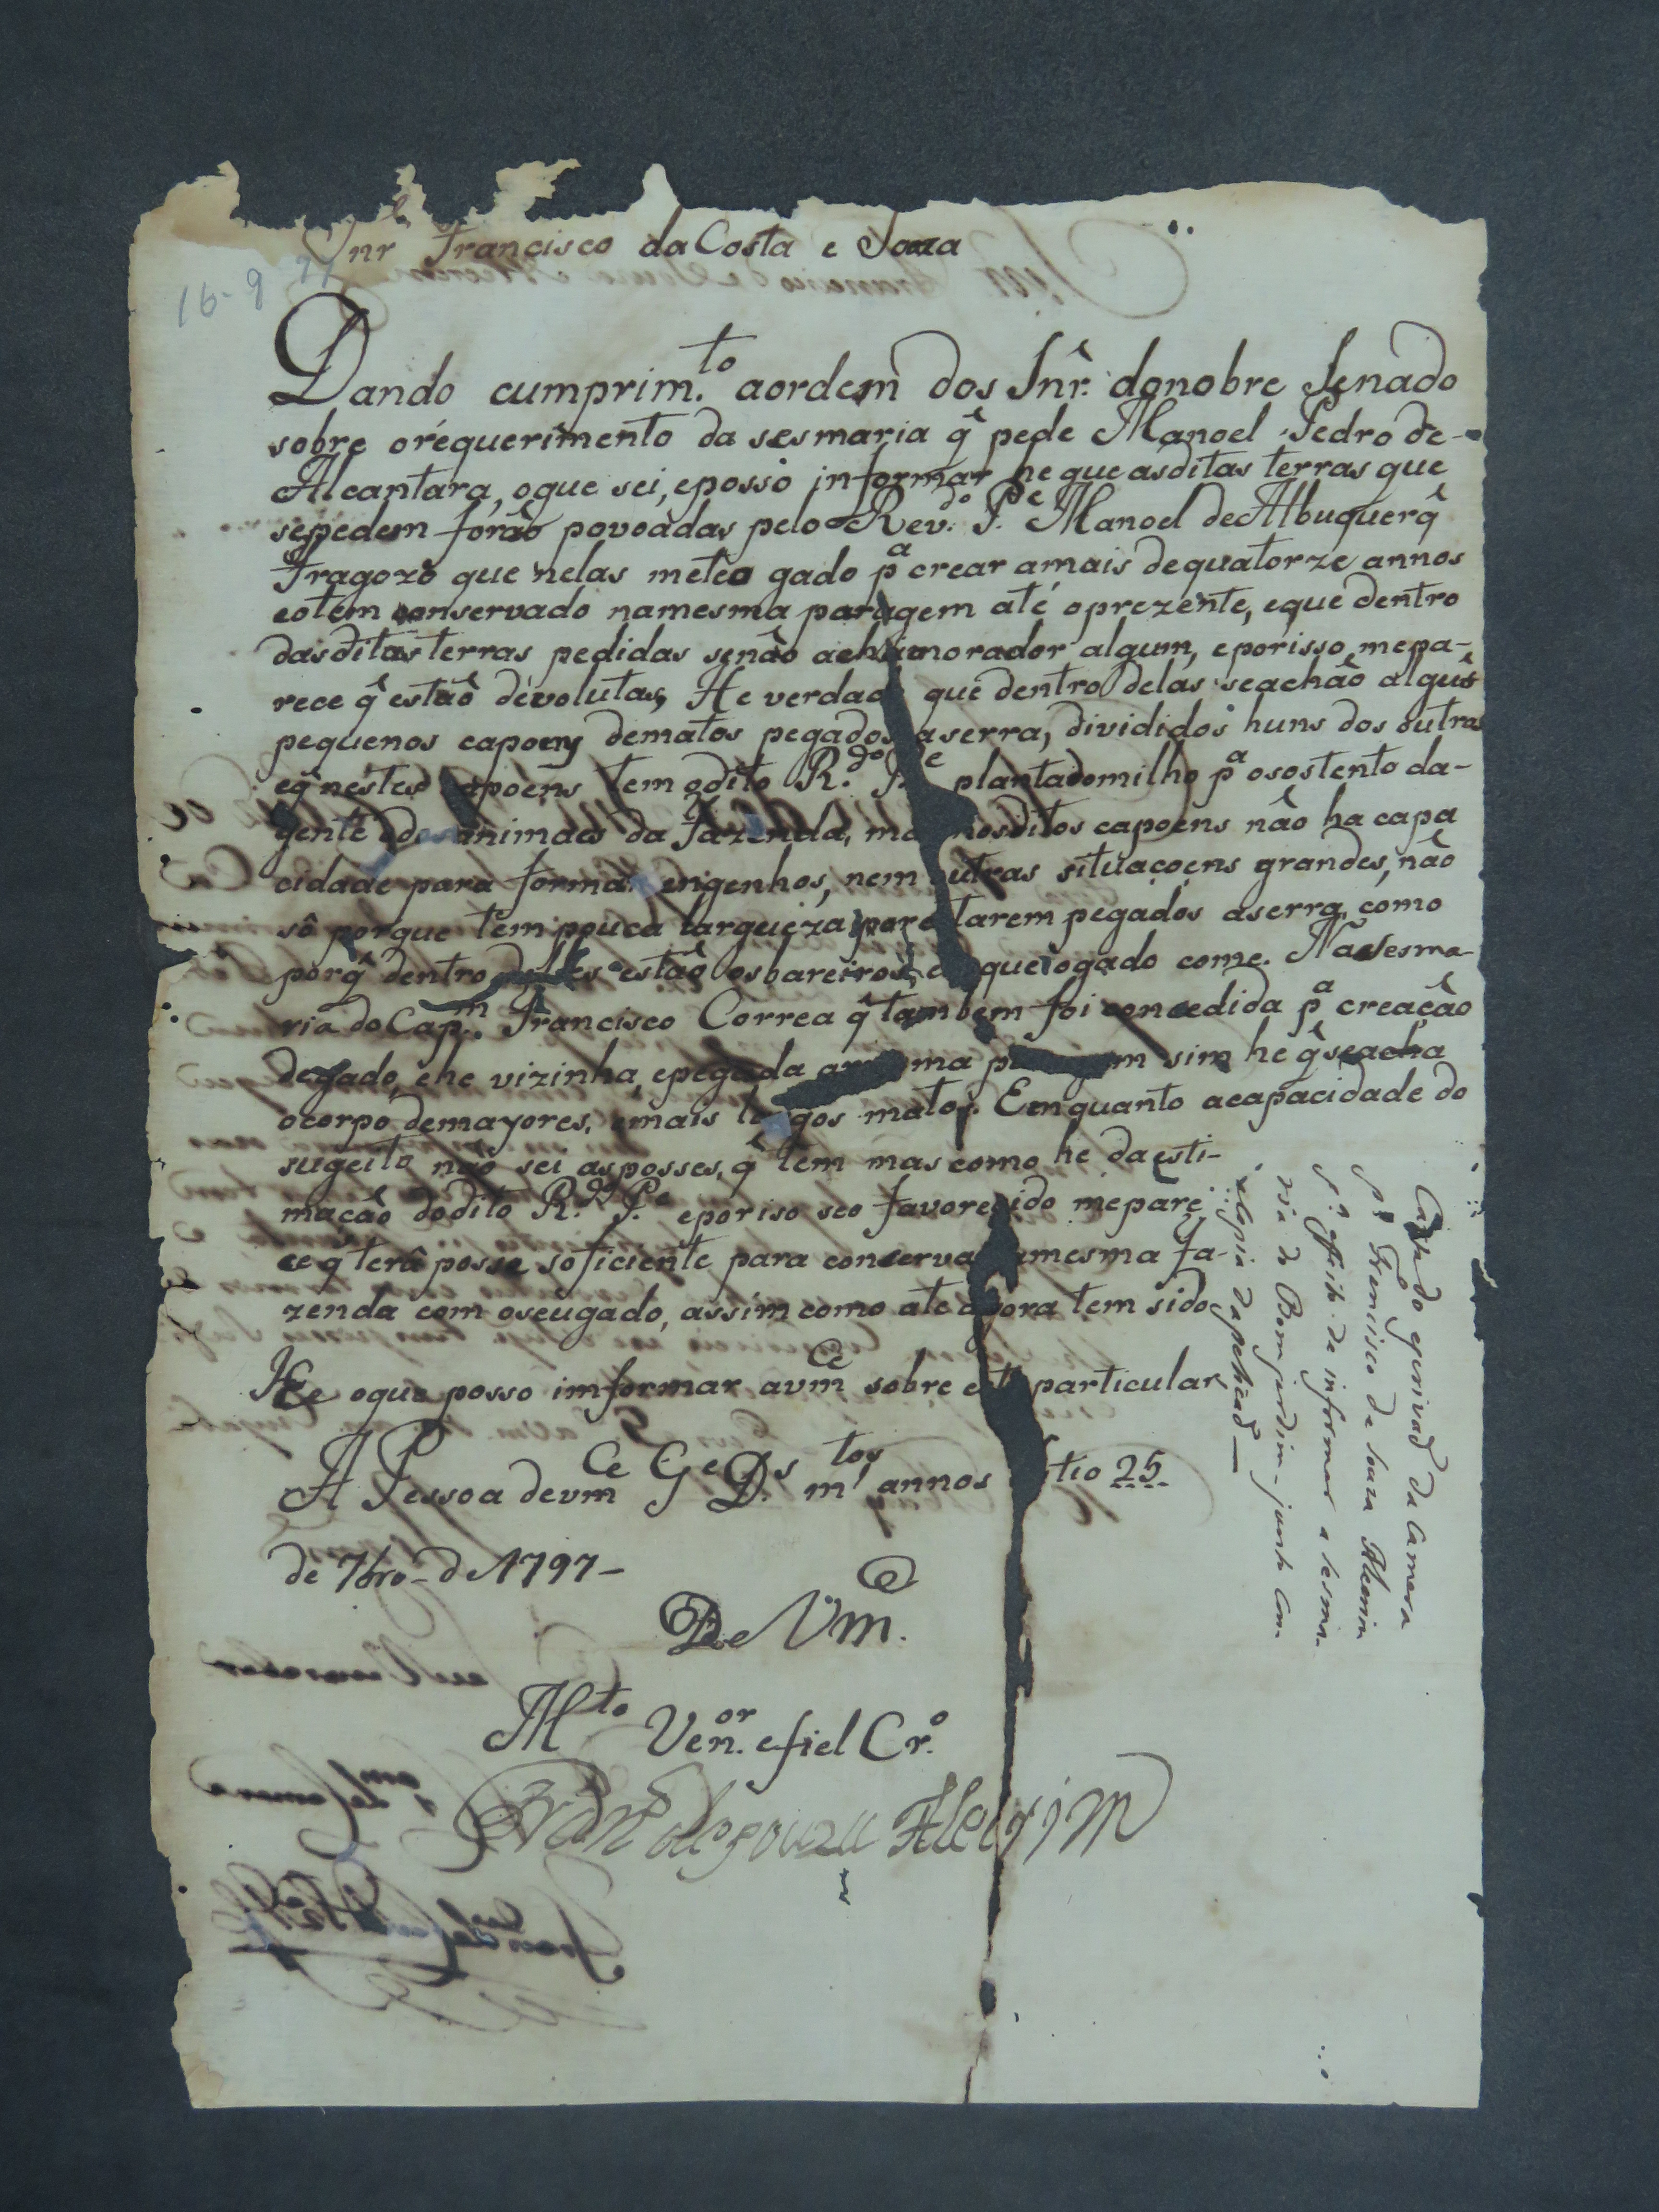 Snr Francisco da Costa e Souza
16-9
Dando cumprim.to aordem dos Snr.ê donobre Senado
sobre orèquerimento da sesmaria q̂ pede Manoel Pedro de-
Alcantara, oque sei, eposso informar he que asditas terras que
sepedem forão povoadas pelo Rev.do P.e Manoel deAlbuquerq̂
Fragozo que nelas meteo gado p.a crear amais dequatorze annos
eotem conservado namesma paragem até oprezente, eque dentro
dasditas terras pedidas senão acha morador algum, eporisso mepa-
rece q̂ estão dèvolutas, He verdad que dentro delas seachão alguñs
pequenos capoens dematos pegados aserra, divididos huns dos outros
eq̂ nestes apoens tem odito R.do P.e plantadomilho p.a osostento da-
gente edos animaes da Fazenda, ma nosditos capoens não ha capa
cidade para formar engenhos, nem utras situaçoens grandes, não
sô porque tem pouca largueza por tarem pegados aserra como
porq̂ dentro deles estão osbareiros, e queogado come. Na Sesma-
ria do Cap.m Francisco Correa q̂ tambem foi concedida p.a creação
degado, ehe vizinha, epegada a ma p m sim he q̂ seacha
ocorpo demayores, emais l gos matos. Eenquanto acapacidade do
sugeito não sei asposses, q̂ tem mas como he daesti-
mação dodito R.do P.e eporiso seo favorecido mepare
ce q̂ terâ posse soficiente para conserva amesma Fa-
zenda com oseugado, assim como ate agora tem sido
He oque posso imformar avm.ce sobre este particular,
A Pessoa devm.ce G.e D.s m.tos annos tio 25
de 7bro- de 1797-
De Vm.ce
M.to Ven.or efiel Cr.o
Fran.co de souza Alecrim
Carta do escrivaõ da Camera
p.a Francisco de Souza Alecrim
p.a effeito de informar a sesma-
ria do Bom jardim - junto com
a copia da petiçaõ —